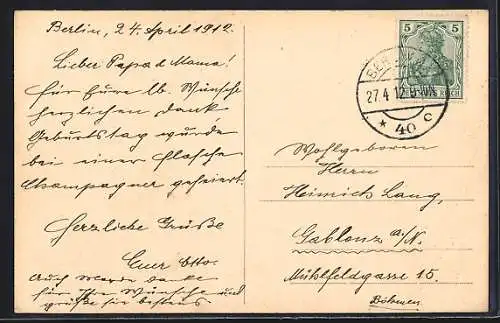 Berlin, 24. April 1912.
Lieber Papa & Mama!
Für Eure lb. Wünsche
herzlichen Dank
Geburtstag wurde
bei einer Flasche
Champagner gefeiert.
Herzliche Grüße
Euer Otto.
Auch
für Ihre Wünsche und
grüße sie bestens
5 5
DEUTSCHES REICH
BERLIN
27.4.12.
* 40 c
Wohlgeboren
Herrn
Heinrich Lang,
Gablonz a/N.
Mühlfeldgasse 15.
Böhmen.